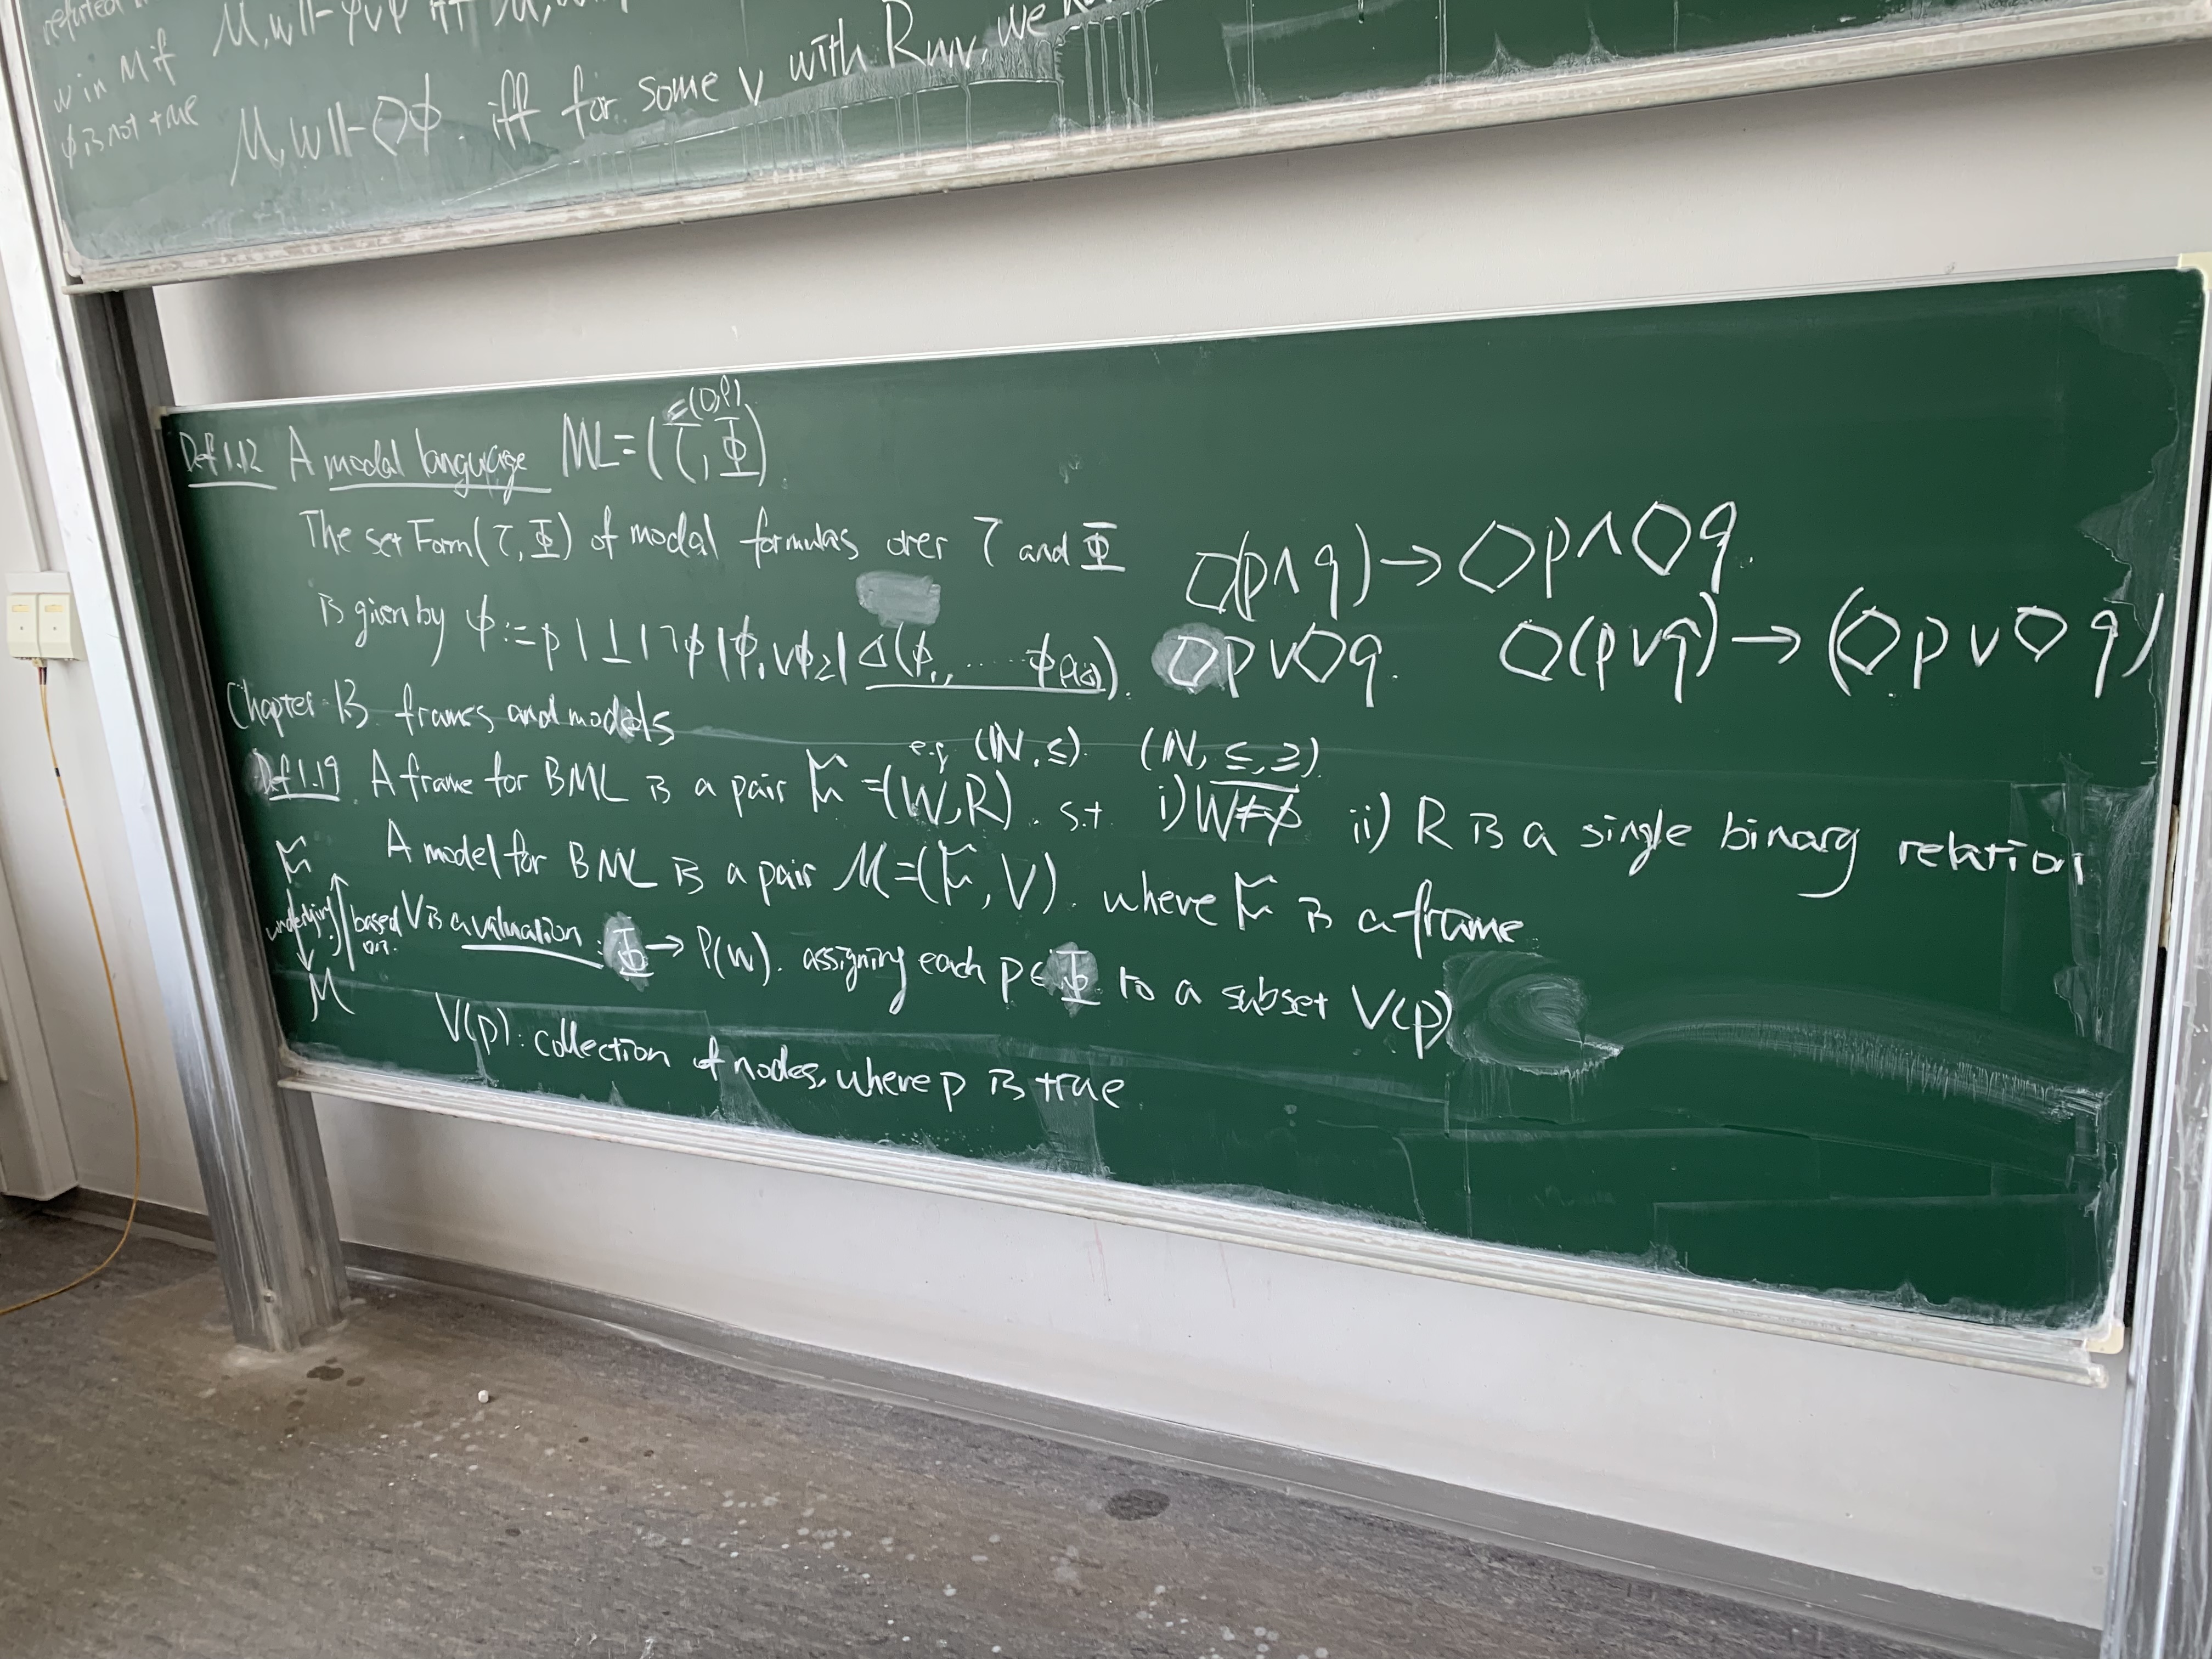 w in M if
ϕ is not true
M, w ⊩ ◇ϕ iff for some v with Rwv, we
Def 1.12 A modal language ML = (τ, Φ)
=(O,ρ)
The set Form(τ, Φ) of modal formulas over τ and Φ
is given by ϕ := p | ⊥ | ¬ϕ | ϕ₁ ∨ ϕ₂ | Δ(ϕ₁, ...... ϕρ(Δ)).
◇(p ∧ q) → ◇p ∧ ◇q.
◇p ∨ ◇q.
◇(p ∨ q) → (◇p ∨ ◇q)
Chapter 1.3 frames and models
e.g (ℕ, ≤). (ℕ, ≤, ≥).
Def 1.19 A frame for BML is a pair 𝔉 = (W, R) s.t i) W ≠ ∅ ii) R is a single binary relation
A model for BML is a pair M = (𝔉, V). where 𝔉 is a frame
V is a valuation : Φ → P(W). assigning each p ∈ Φ to a subset V(p)
𝔉
underlying
based on.
M
V(p): collection of nodes, where p is true